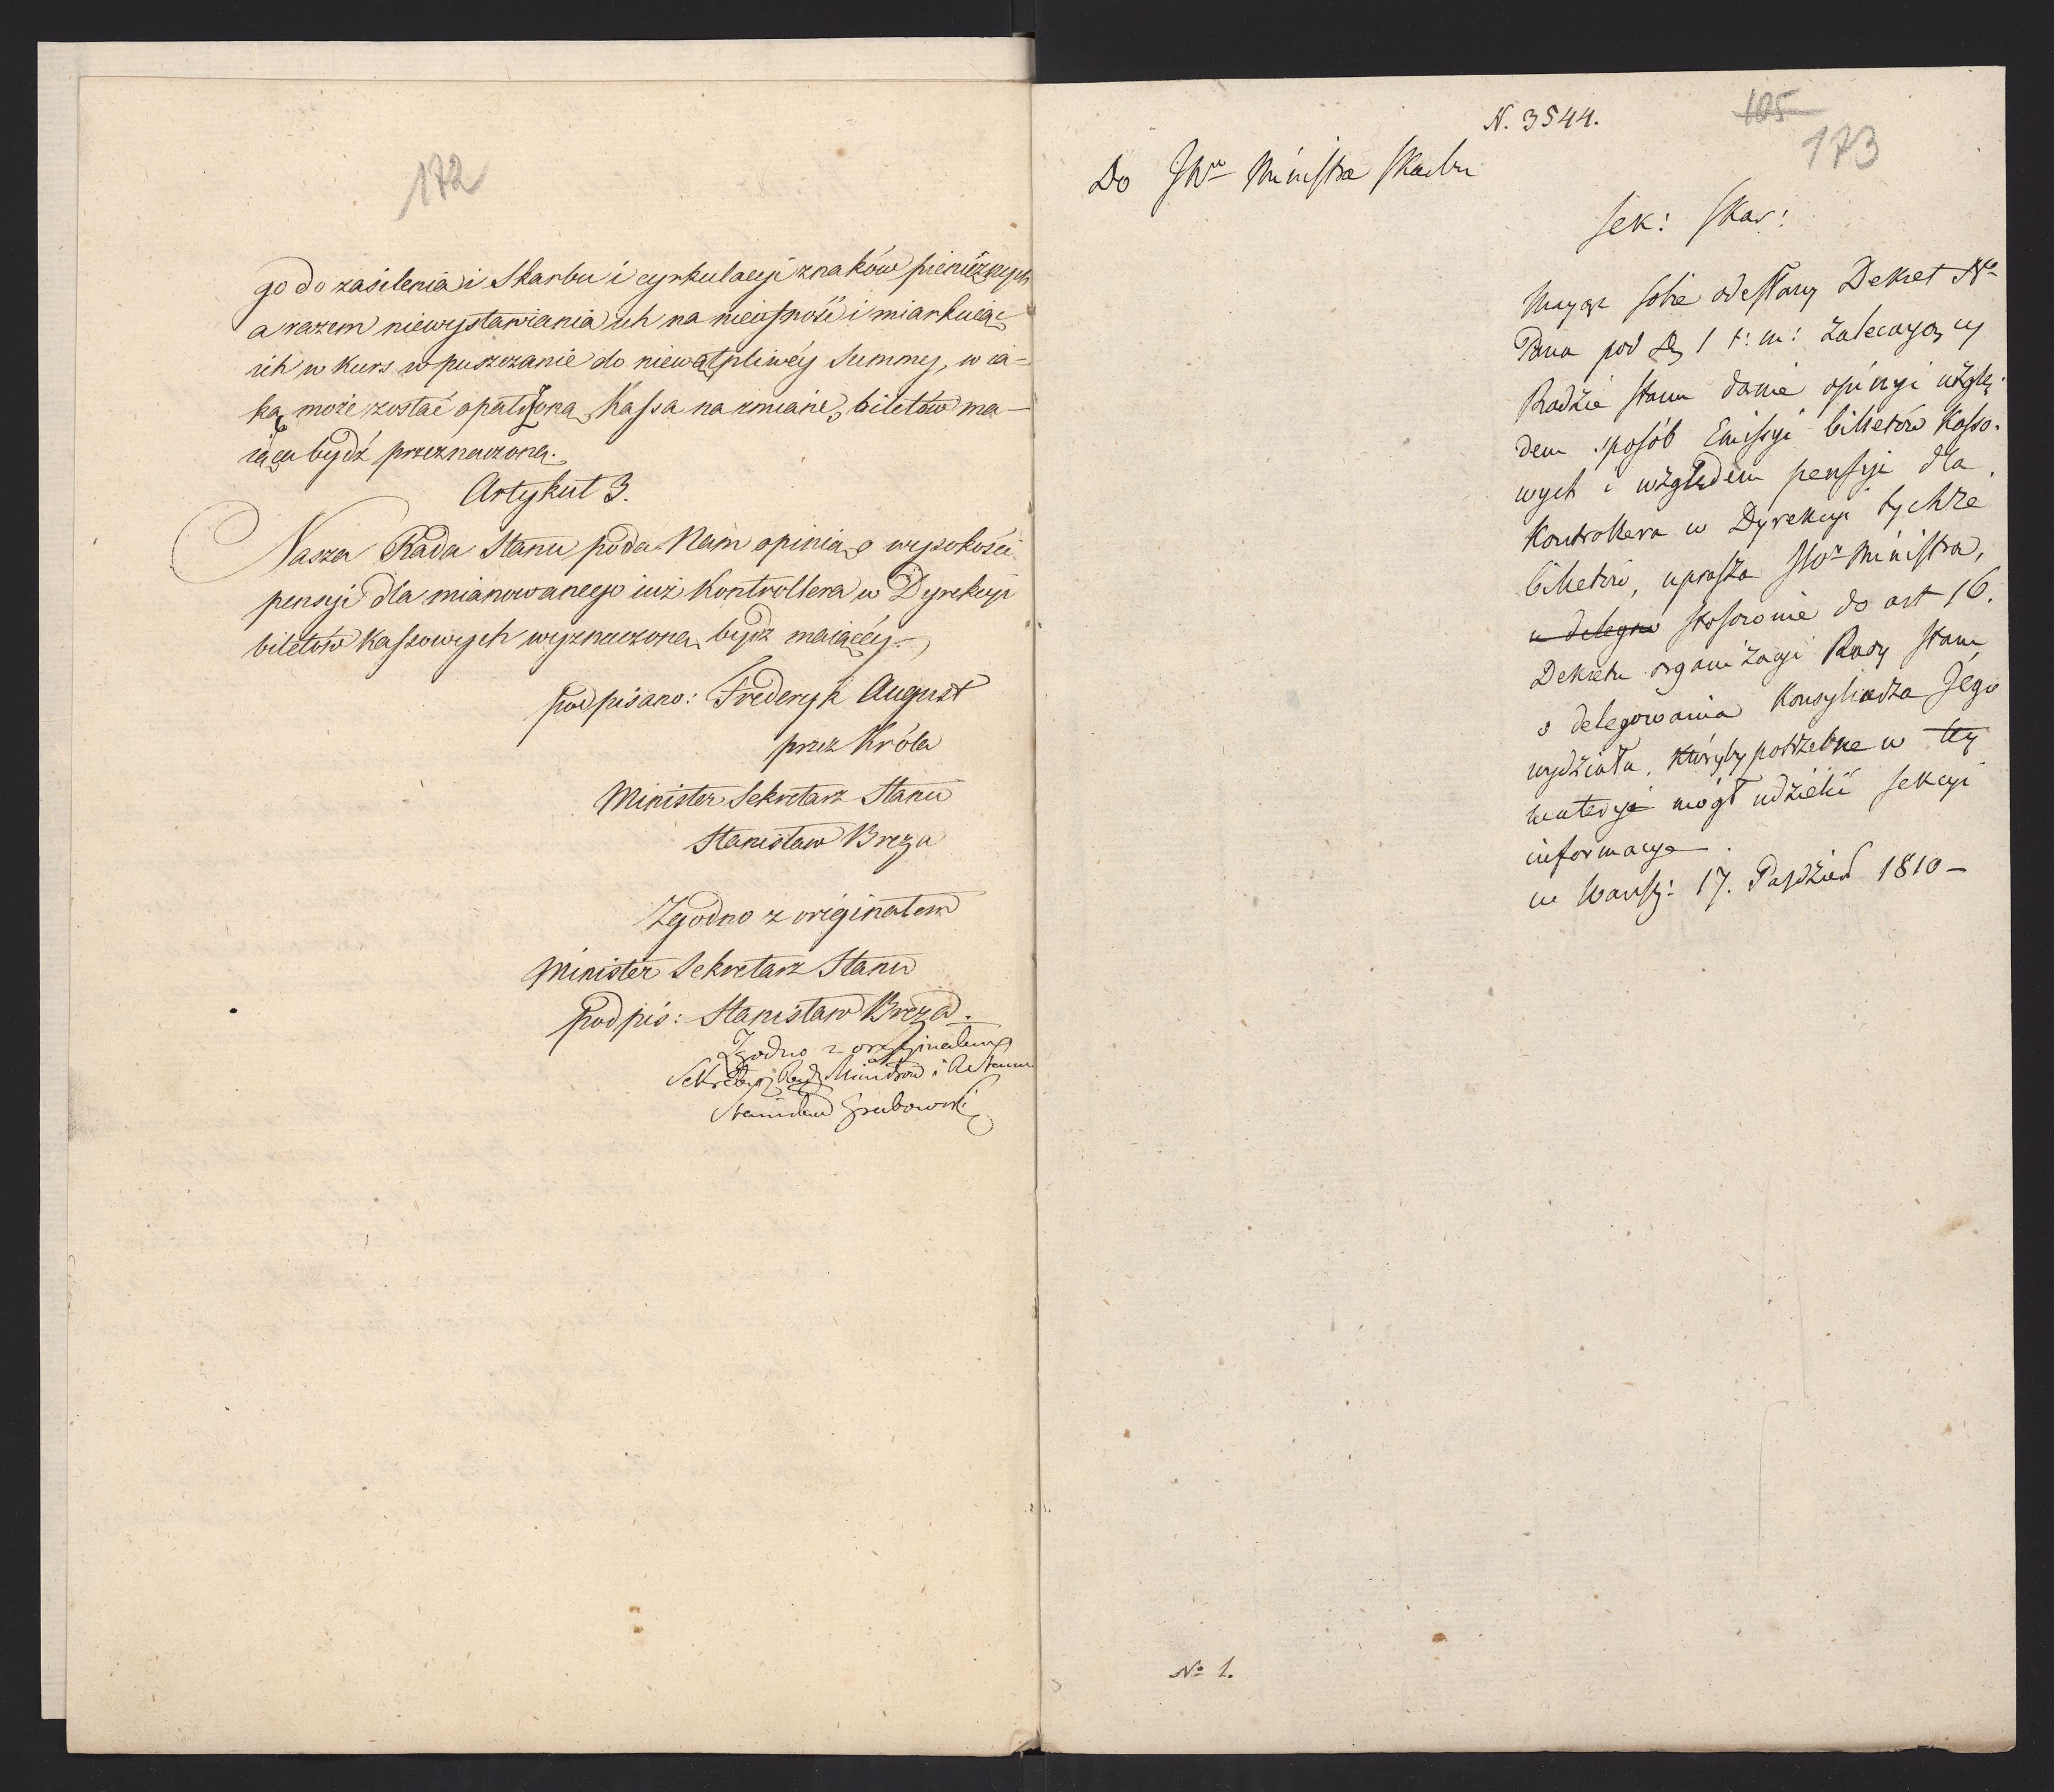 172
go do zasilenia i Skarbu i cyrkulacyi znaków pieniężnych
a razem niewystawiania ich na nieufność i miarkuiąc
ich w kurs wpuszczanie do niewątpliwéy Summy, w ia-
ką może zostać opatrzona Kassa na zmianę biletów ma-
iąca bydź przeznaczona.
Artykuł 3.
Nasza Rada Stanu poda Nam opinią o wysokości
pensyi dla mianowanego iuż Kontrollera w Dyrekcyi
biletów kassowych wyznaczoną bydź maiącéy.
podpisano: Frederyk August
przez Króla
Minister Sekretarz Stanu
Stanisław Breza
Zgodno z originałem
Minister Sekretarz Stanu
podpis: Stanisław Breza.
Zgodno z oryginałem
Sekretarz Rady Ministrów i R. Stanu
Stanisław Grabowski
N. 3544.
105
173
Do JW Ministra Skarbu
Sek: Skar:
Maiąc sobie odesłany Dekret N
Pana pod d. 1 t: m: zalecaiący
Radzie Stanu danie opinyi wzglę-
dem sposób Emissyi billetów kasso-
wych i względem pensyi dla
Kontrollera w Dyrekcyi tychże
billetów, uprasza JW Ministra,
stosownie do art 16.
Dekretu organizacyi Rady Stanu
o delegowania Konsyliarza Jego
wydziału, któryby potrzebne w tey
materyi mógł udzielić sekcyi
informacye.
w Warsz: 17. Paździer 1810 –
No 1.